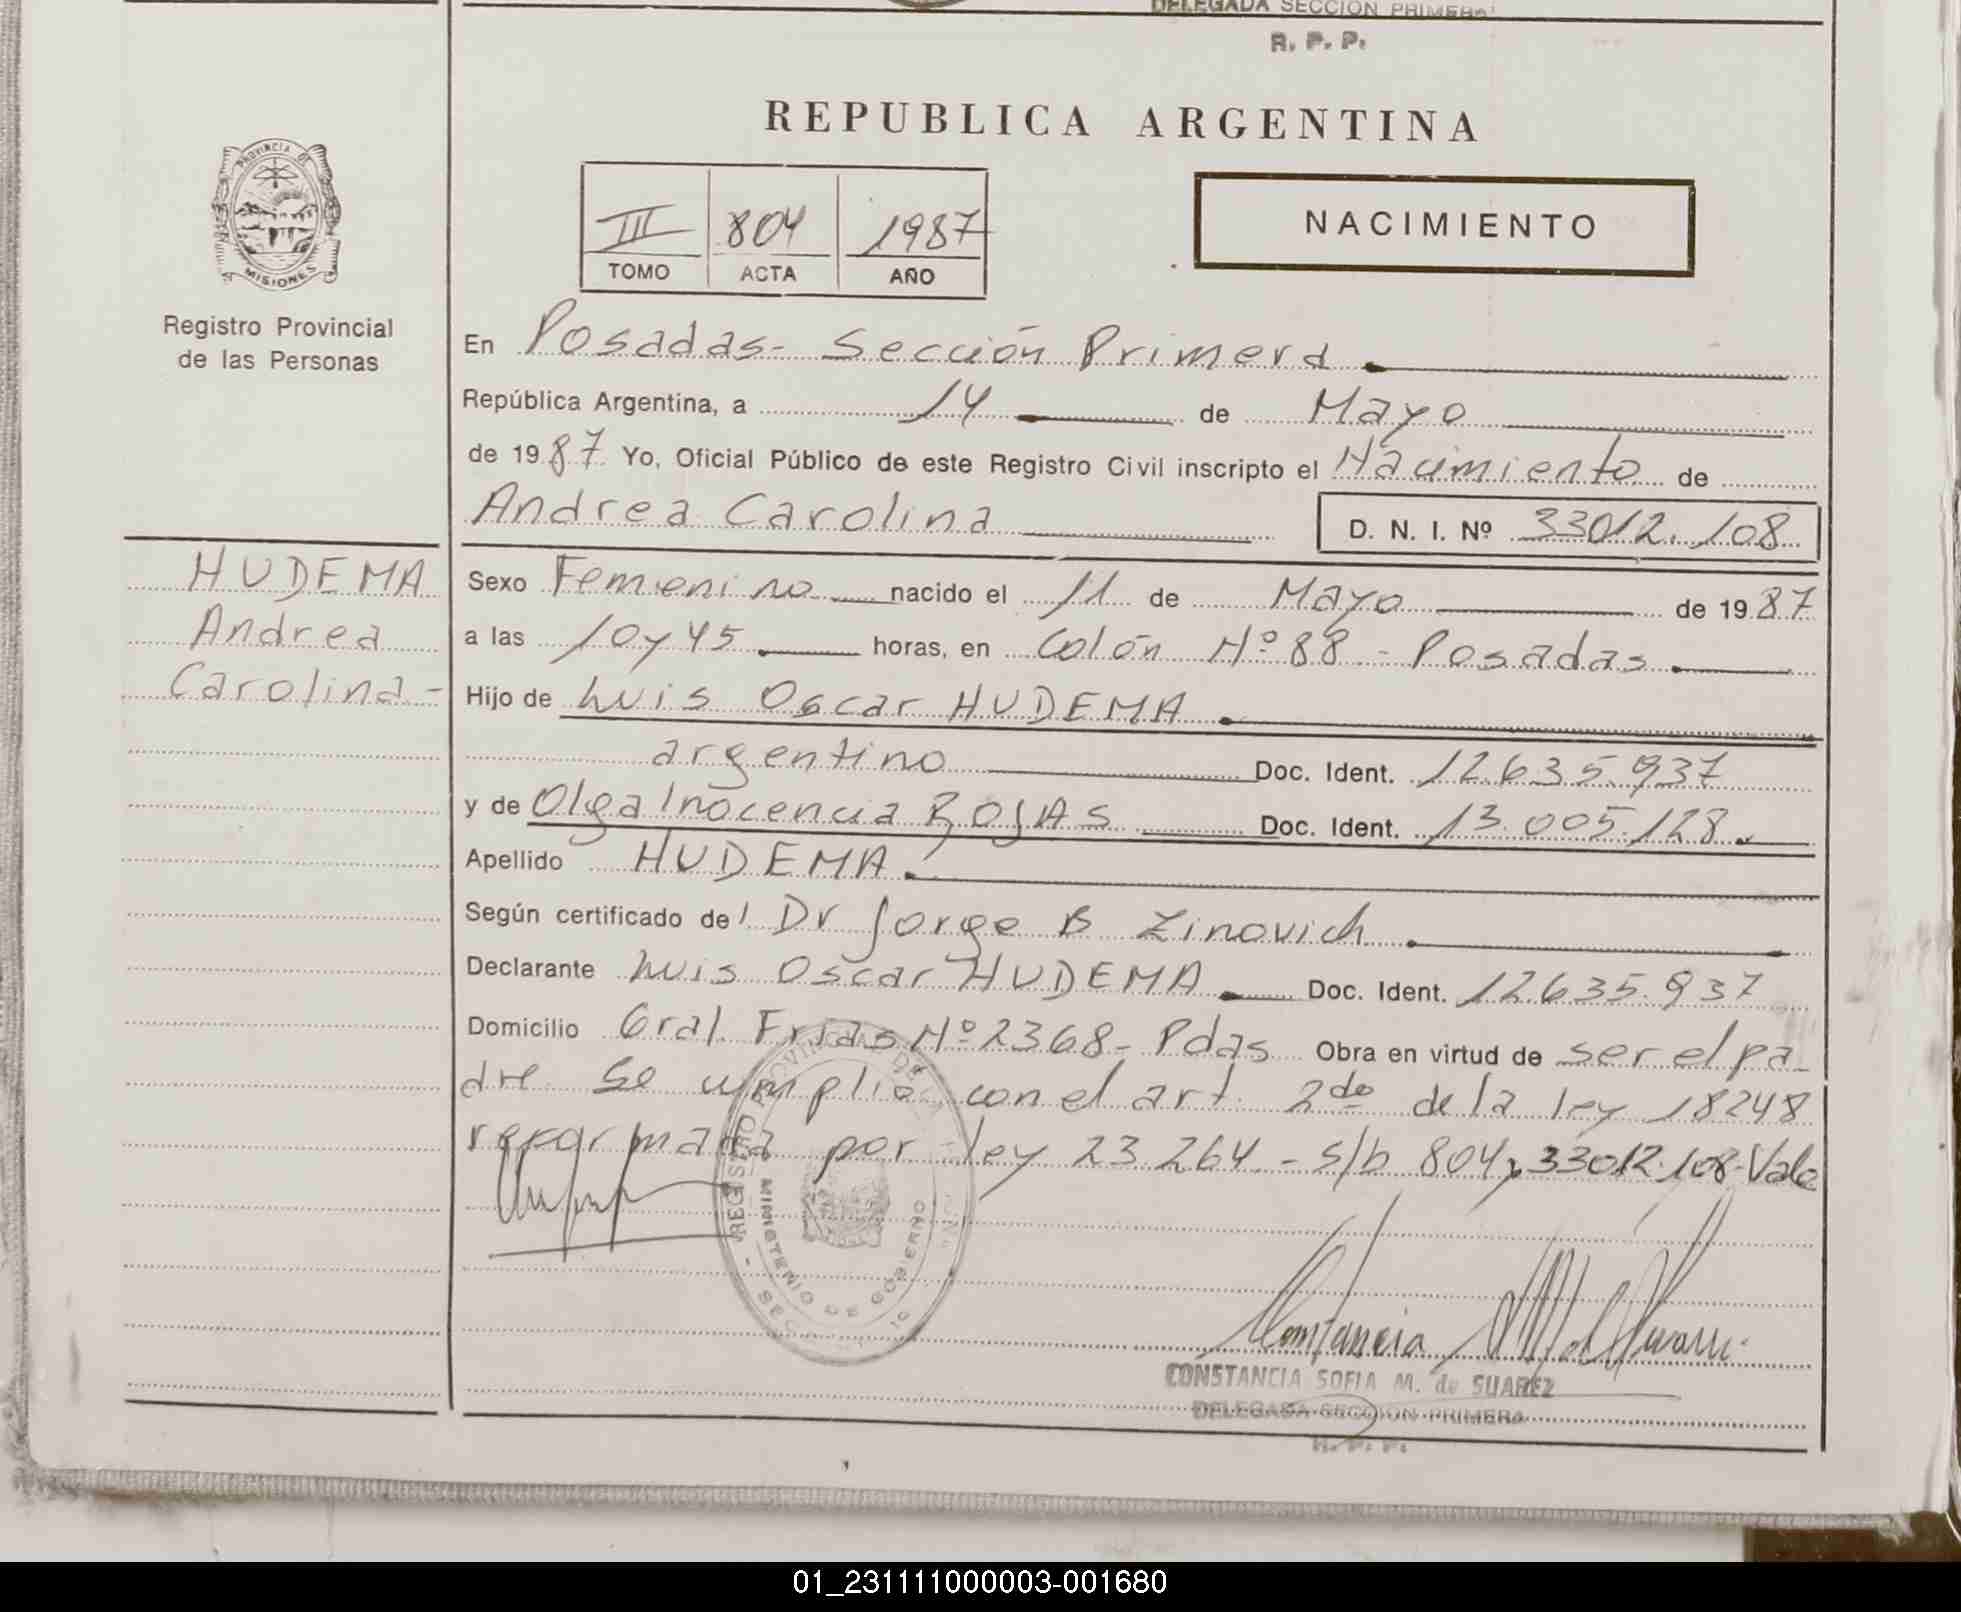 DELEGADA SECCION PRIMERA
R. P. P.
REPUBLICA ARGENTINA
PROVINCIA DE
MISIONES
Registro Provincial
de las Personas
III 804 1987
TOMO ACTA AÑO
NACIMIENTO
En Posadas - Sección Primera
República Argentina, a 14 de Mayo
de 1987 Yo, Oficial Público de este Registro Civil inscripto el Nacimiento de
Andrea Carolina D. N. I. Nº 33012.108
HUDEMA
Andrea
Carolina-
Sexo Femenino nacido el 11 de Mayo de 1987
a las 10 y 45 horas, en Colón Nº 88 - Posadas
Hijo de Luis Oscar HUDEMA
argentino Doc. Ident. 12.635.937
y de Olga Inocencia ROJAS Doc. Ident. 13.005.128
Apellido HUDEMA
Según certificado del Dr Jorge B Zinovich
Declarante Luis Oscar HUDEMA Doc. Ident. 12635.937
Domicilio Gral. Frias Nº 2368 - Pdas Obra en virtud de ser el pa-
dre. Se cumplió con el art. 2do de la ley 18248
reformada por ley 23.264. - s/b 804, 33012.108-Vale
REGISTRO PROVINCIAL DE
MINISTERIO DE GOBIERNO
Constancia
CONSTANCIA SOFIA M. de SUAREZ
DELEGADA SECCION PRIMERA
R. P. P.
01_231111000003-001680